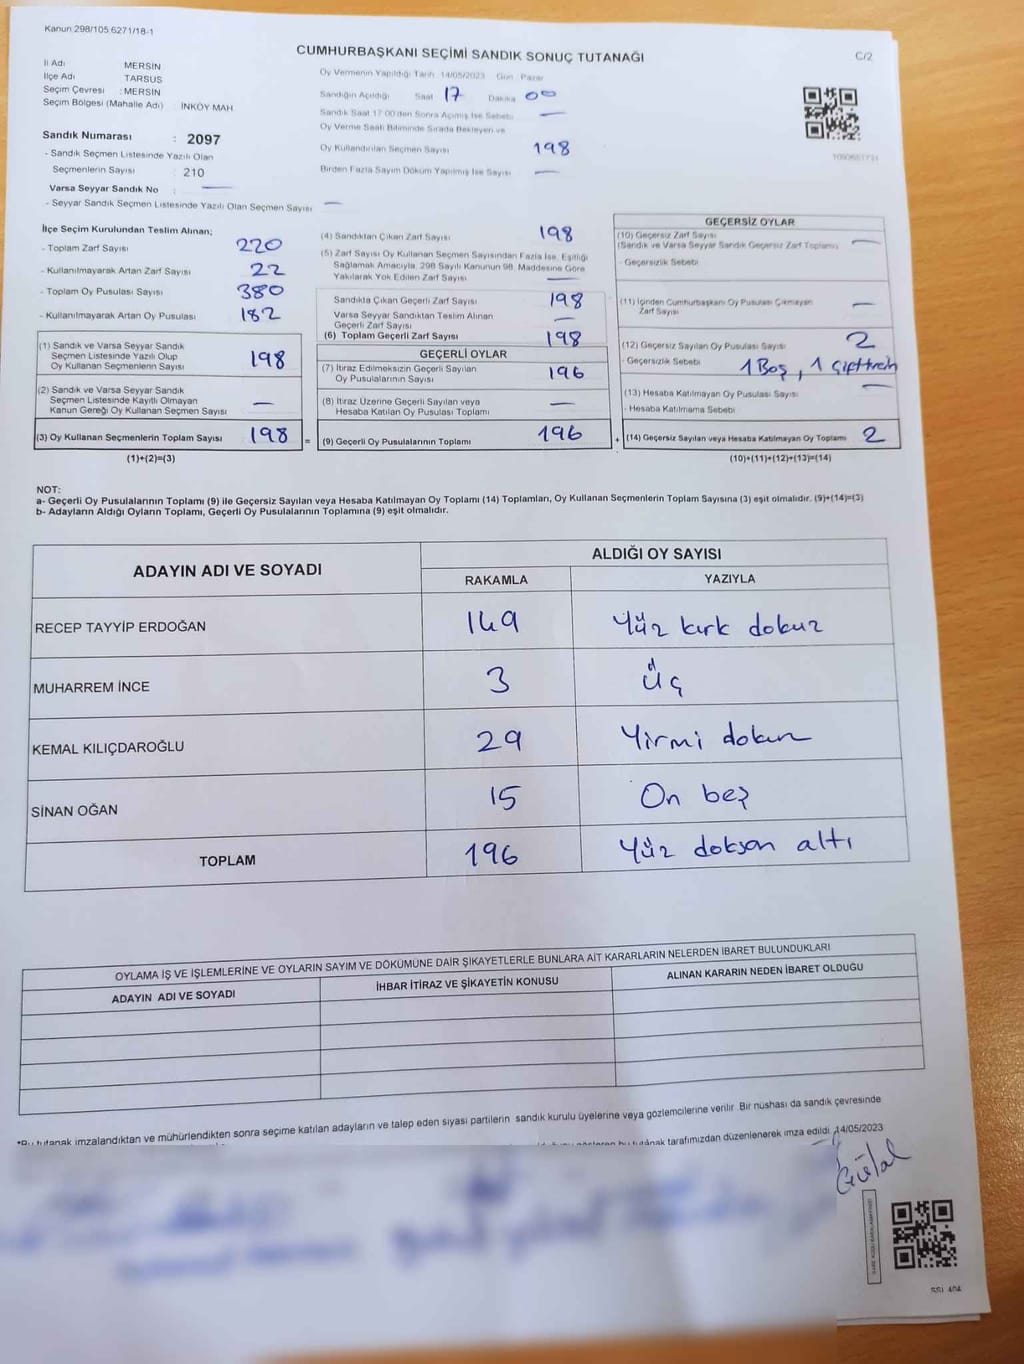 Kanun 298/105 6271/18-1
CUMHURBAŞKANI SEÇİMİ SANDIK SONUÇ TUTANAĞI
C/2
İl Adı MERSİN
İlçe Adı TARSUS
Seçim Çevresi : MERSİN
Seçim Bölgesi (Mahalle Adı) : İNKÖY MAH.
Sandık Numarası : 2097
- Sandık Seçmen Listesinde Yazılı Olan
Seçmenlerin Sayısı : 210
Varsa Seyyar Sandık No : —
- Seyyar Sandık Seçmen Listesinde Yazılı Olan Seçmen Sayısı —
Oy Vermenin Yapıldığı Tarih 14/05/2023 Gün Pazar
Sandığın Açıldığı Saat 17 Dakika 00
Sandık Saat 17 00'den Sonra Açılmış İse Sebebi —
Oy Verme Saati Bitiminde Sırada Bekleyen ve
Oy Kullandırılan Seçmen Sayısı 198
Birden Fazla Sayım Döküm Yapılmış İse Sayısı —
İlçe Seçim Kurulundan Teslim Alınan;
- Toplam Zarf Sayısı 220
- Kullanılmayarak Artan Zarf Sayısı 22
- Toplam Oy Pusulası Sayısı 380
- Kullanılmayarak Artan Oy Pusulası 182
(1) Sandık ve Varsa Seyyar Sandık
Seçmen Listesinde Yazılı Olup
Oy Kullanan Seçmenlerin Sayısı 198
(2) Sandık ve Varsa Seyyar Sandık
Seçmen Listesinde Kayıtlı Olmayan
Kanun Gereği Oy Kullanan Seçmen Sayısı —
(3) Oy Kullanan Seçmenlerin Toplam Sayısı 198 =
(1)+(2)=(3)
(4) Sandıktan Çıkan Zarf Sayısı 198
(5) Zarf Sayısı Oy Kullanan Seçmen Sayısından Fazla İse, Eşitliği
Sağlamak Amacıyla, 298 Sayılı Kanunun 98. Maddesine Göre
Yakılarak Yok Edilen Zarf Sayısı —
Sandıkta Çıkan Geçerli Zarf Sayısı 198
Varsa Seyyar Sandıktan Teslim Alınan
Geçerli Zarf Sayısı —
(6) Toplam Geçerli Zarf Sayısı 198
GEÇERLİ OYLAR
(7) İtiraz Edilmeksizin Geçerli Sayılan
Oy Pusulalarının Sayısı 196
(8) İtiraz Üzerine Geçerli Sayılan veya
Hesaba Katılan Oy Pusulası Toplamı —
(9) Geçerli Oy Pusulalarının Toplamı 196 +
GEÇERSİZ OYLAR
(10) Geçersiz Zarf Sayısı —
(Sandık ve Varsa Seyyar Sandık Geçersiz Zarf Toplamı)
- Geçersizlik Sebebi
(11) İçinden Cumhurbaşkanı Oy Pusulası Çıkmayan
Zarf Sayısı —
(12) Geçersiz Sayılan Oy Pusulası Sayısı 2
- Geçersizlik Sebebi 1 Boş, 1 çift
(13) Hesaba Katılmayan Oy Pusulası Sayısı —
- Hesaba Katılmama Sebebi
(14) Geçersiz Sayılan veya Hesaba Katılmayan Oy Toplamı 2
(10)+(11)+(12)+(13)=(14)
NOT:
a- Geçerli Oy Pusulalarının Toplamı (9) ile Geçersiz Sayılan veya Hesaba Katılmayan Oy Toplamı (14) Toplamları, Oy Kullanan Seçmenlerin Toplam Sayısına (3) eşit olmalıdır. (9)+(14)=(3)
b- Adayların Aldığı Oyların Toplamı, Geçerli Oy Pusulalarının Toplamına (9) eşit olmalıdır.
ADAYIN ADI VE SOYADI ALDIĞI OY SAYISI
RAKAMLA YAZIYLA
RECEP TAYYİP ERDOĞAN 149 Yüz kırk dokuz
MUHARREM İNCE 3 Üç
KEMAL KILIÇDAROĞLU 29 Yirmi dokuz
SİNAN OĞAN 15 On beş
TOPLAM 196 Yüz doksan altı
OYLAMA İŞ VE İŞLEMLERİNE VE OYLARIN SAYIM VE DÖKÜMÜNE DAİR ŞİKAYETLERLE BUNLARA AİT KARARLARIN NELERDEN İBARET BULUNDUKLARI
ADAYIN ADI VE SOYADI İHBAR İTİRAZ VE ŞİKAYETİN KONUSU ALINAN KARARIN NEDEN İBARET OLDUĞU
*Bu tutanak imzalandıktan ve mühürlendikten sonra seçime katılan adayların ve talep eden siyasi partilerin sandık kurulu üyelerine veya gözlemcilerine verilir. Bir nüshası da sandık çevresinde
bu tutanak tarafımızdan düzenlenerek imza edildi. 14/05/2023